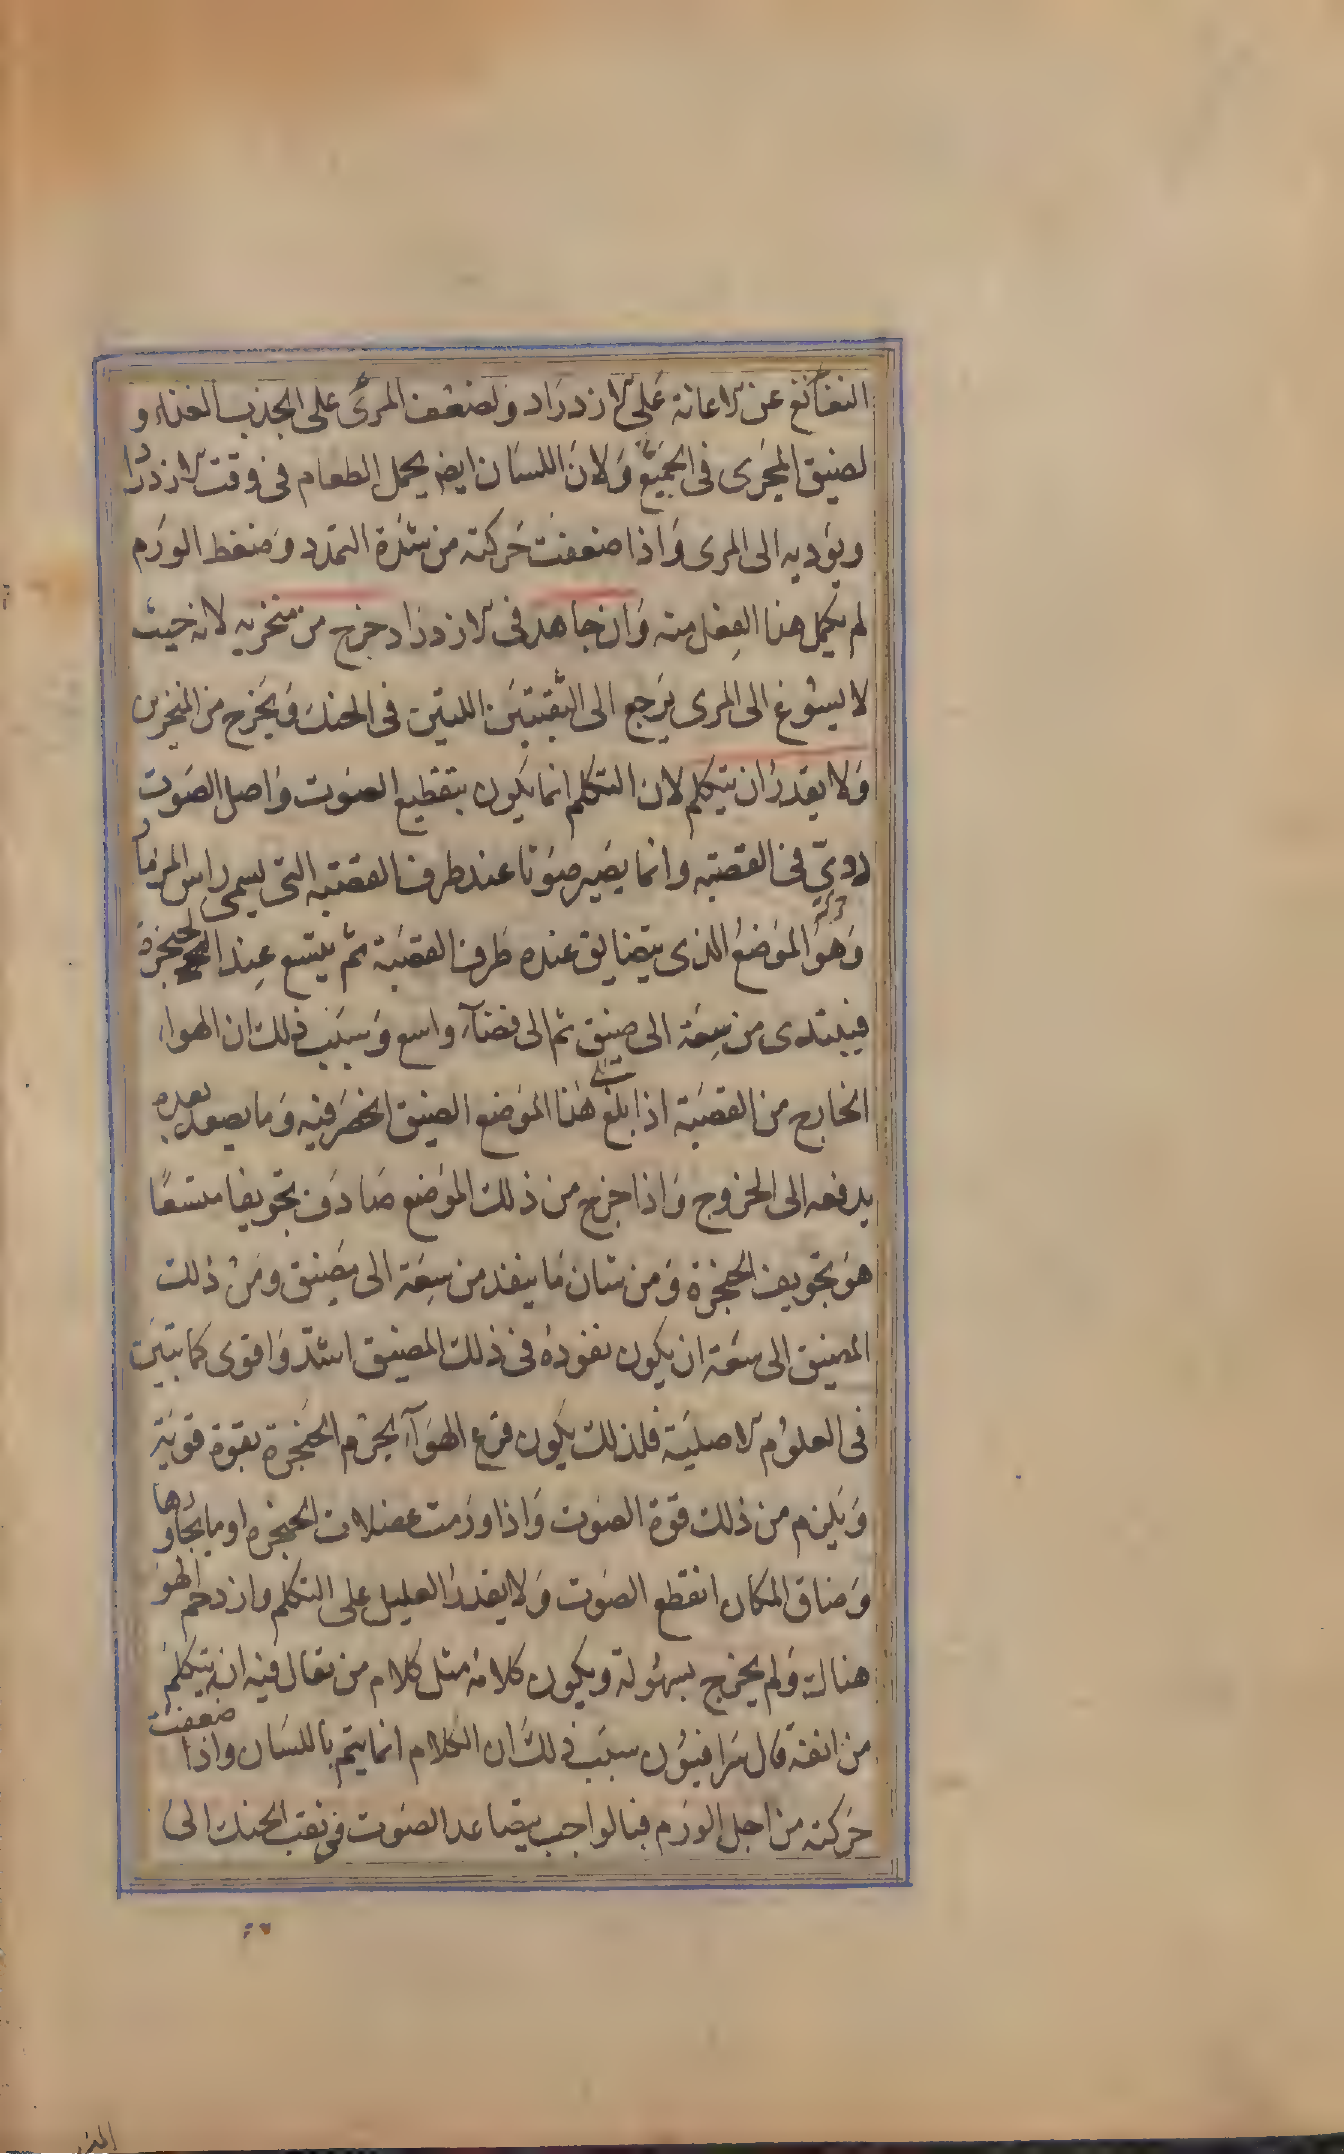 النغانغ عن الاعانة على الازدراد ولضعف المرئ على الجذب الغذاء و
لضيق المجرى فى الجميع ولان اللسان ايضا يحمل الطعام فى وقت الازدرا
ويؤديه الى المرى واذا ضعفت حركته من شدة التمدد وضغط الورم
لم يكمل هذا الفعل منه وان جاهد فى الازدراد خرج من منخريه لانه حيث
لا يسوغ الى المرى يرجع الى الثقبتين اللتين فى الحنك ويخرج من المنخرين
ولا يقدر ان يتكلم لان التكلم انما يكون بتقطيع الصوت واصل الصوت
دوىّ فى القصبة وانما يصير صوتا عند طرف القصبة التى يسمى راس المزمار
وهو الموضع الذى يتضايق عنده طرف القصبة ثم يتسع عند الحنجرة
فيبتدى من سعة الى ضيق ثم الى فضاء واسع وسبب ذلك ان الهواء
الخارج من القصبة اذا بلغ الى هذا الموضع الضيق انحصر فيه وما يصعد بعده
يدفعه الى الخروج واذا خرج من ذلك الموضع صادف تجويفا متسعا
هو تجويف الحنجرة ومن شان ما ينفذ من سعة الى مضيق ومن ذلك
المضيق الى سعة ان يكون نفوذه فى ذلك المضيق اشدّ واقوى كما يتبيّن
فى العلوم الاصلية فلذلك يكون قرع الهواء لجرم الحنجرة بقوة قوية
ويلزم من ذلك قوة الصوت واذا ورمت عضلات الحنجرة او ما يجاورها
وضاق المكان انقطع الصوت ولا يقدر العليل على التكلم وازدحم الهو
هناك ولم يخرج بسهولة ويكون كلامه مثل كلام من يقال فيه انه يتكلم
من انفه قال سرافيون سبب ذلك ان الكلام انما يتم باللسان واذا ضعفت
حركته من اجل الورم فبالواجب يتصاعد الصوت فى ثقب الحنك الى